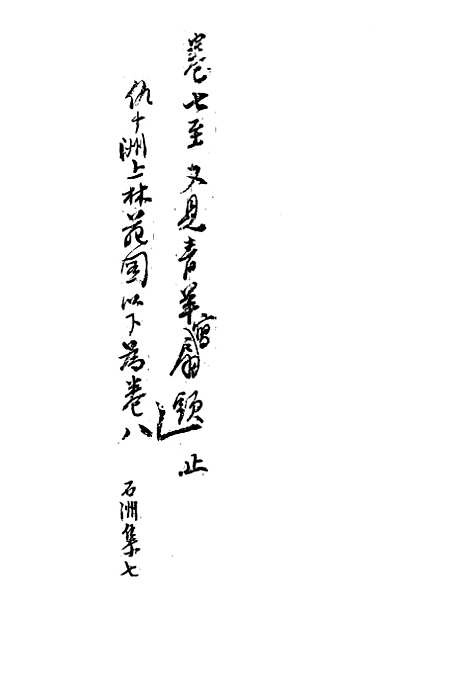 卷七至又見青華寫扇題止
仇十洲上林苑圖以下為卷八
石洲集七